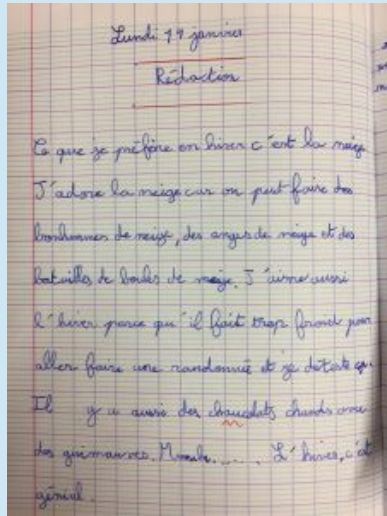 Lundi 11 janvier
Rédaction
Ce que je préfère en hiver c'est la neige
J'adore la neige car on peut faire des
bonhommes de neige, des anges de neige et des
batailles de boules de neige. J'aime aussi
l'hiver parce qu'il fait trop froid pour
aller faire une randonnée et je déteste ça.
Il y a aussi des chaucolats chauds avec
des guimauves. L'hiver, c'est
génial.